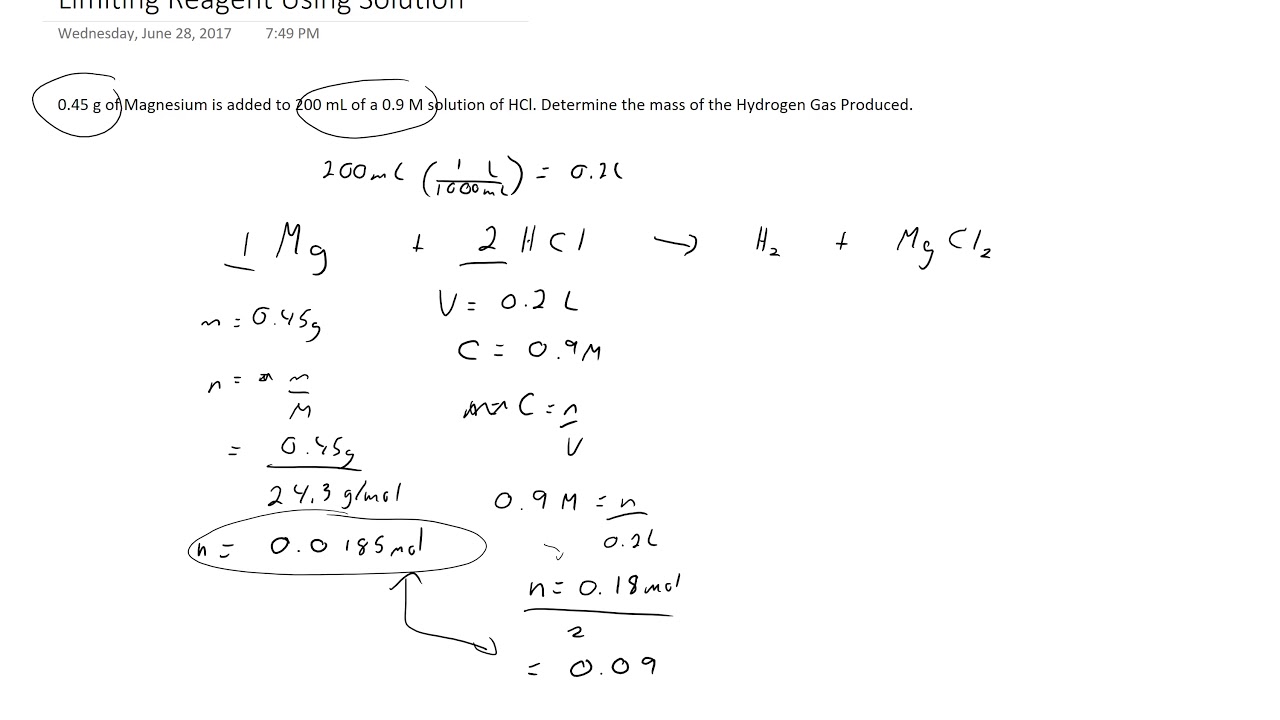 Limiting Reagent Using Solution
Wednesday, June 28, 2017 7:49 PM
0.45 g of Magnesium is added to 200 mL of a 0.9 M solution of HCl. Determine the mass of the Hydrogen Gas Produced.
200mL (1 L / 1000mL) = 0.2L
1 Mg + 2 HCl → H₂ + MgCl₂
m = 0.45g
V = 0.2 L
C = 0.9M
n = m / M
C = n / V
= 0.45g / 24.3 g/mol
0.9 M = n / 0.2L
n = 0.0185mol
n = 0.18mol / 2
= 0.09